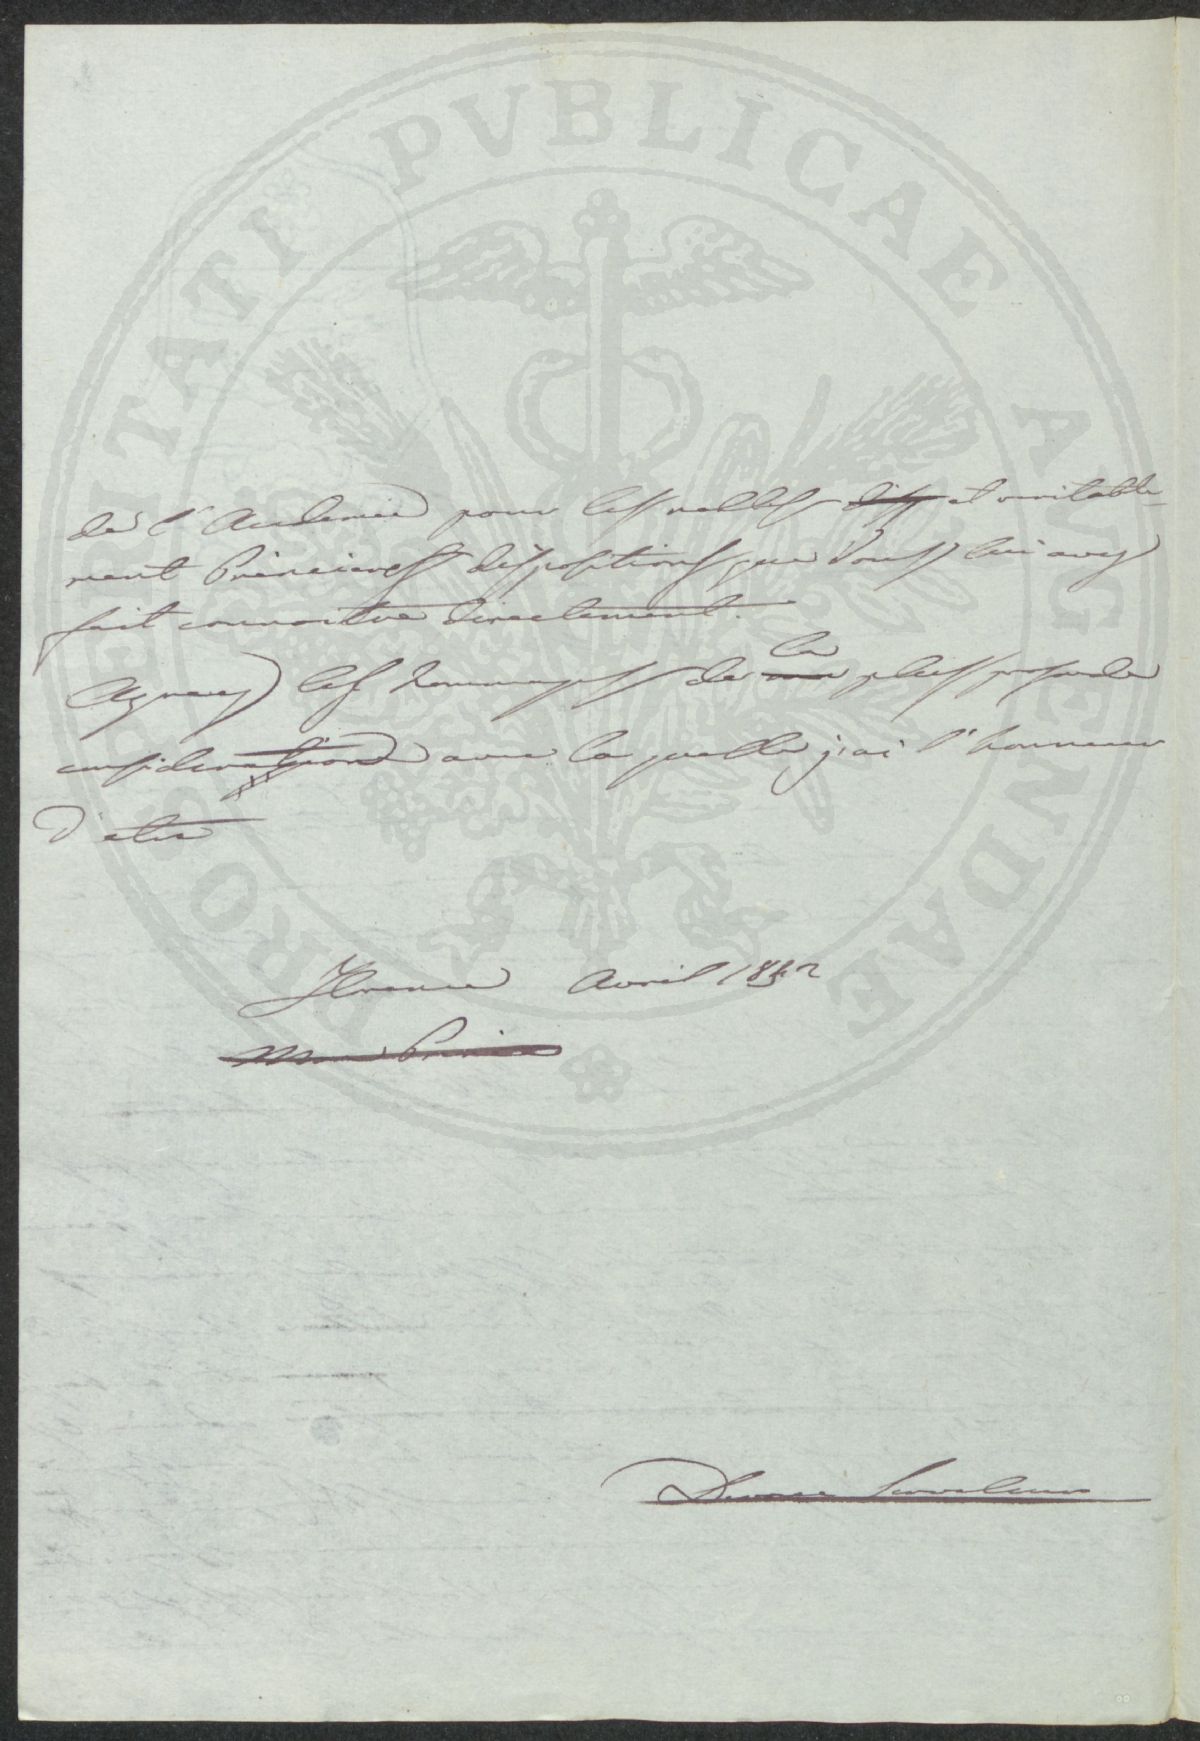 PROSPERITATI PVBLICAE AVGENDAE
de l'Academie pour les nobles et veritable-
ment Princieres dispositions que Vous lui avez
fait connoitre directement.
la
Agreez les hommages de ma plus profonde
consideration avec la quelle j'ai l'honneur
d'etre
Florence Avril 1842
Mon Prince